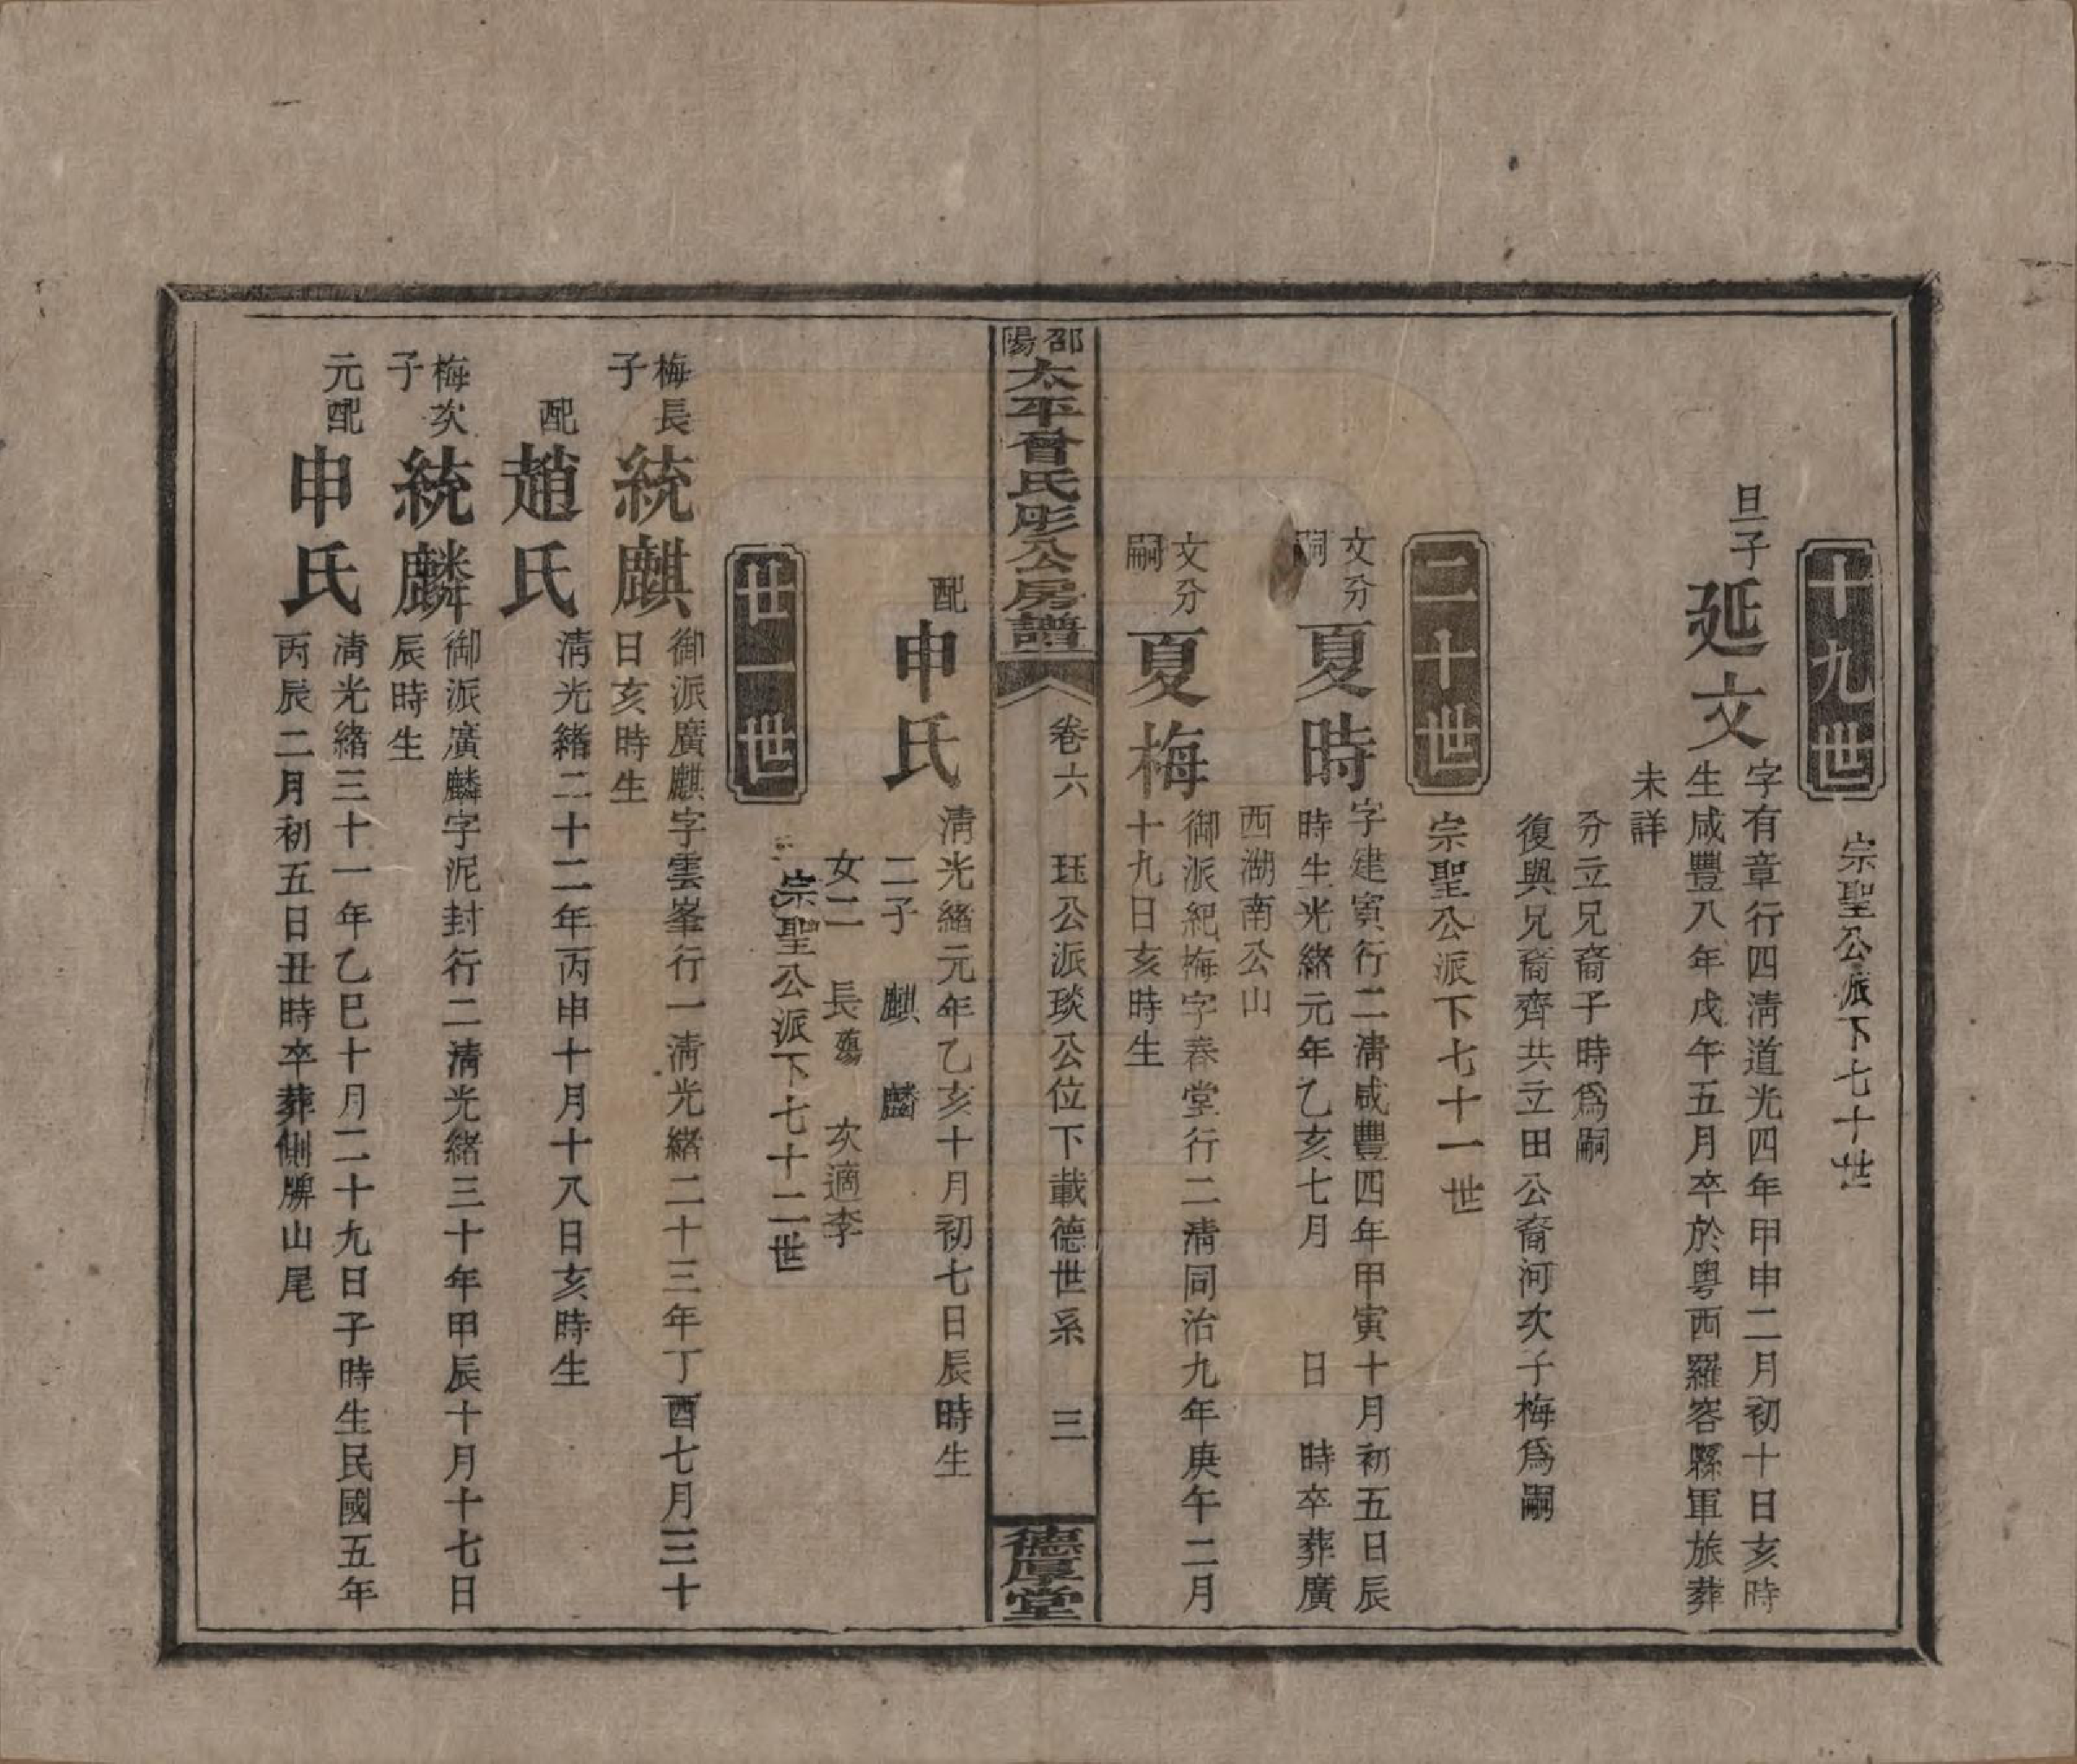 十九世
宗聖公派下七十世
旦子
延文
字有章行四淸道光四年甲申二月初十日亥時
生咸豐八年戊午五月卒於粤西羅容縣軍旅葬
未詳
分立兄裔子時爲嗣
復與兄裔齊共立田公裔河次子梅爲嗣
二十世
宗聖公派下七十一世
文分
嗣
夏時
字建寅行二淸咸豐四年甲寅十月初五日辰
時生光緒元年乙亥七月 日 時卒葬廣
西湖南公山
文分
嗣
夏梅
御派紀梅字春堂行二淸同治九年庚午二月
十九日亥時生
邵陽
太平曾氏彤公房譜
卷六 珏公派琰公位下載德世系 三
德厚堂
配
申氏
淸光緒元年乙亥十月初七日辰時生
二子 麒 麟
女二 長殤 次適李
廿一世
宗聖公派下七十二世
梅長
子
統麒
御派廣麒字雲峯行一淸光緒二十三年丁酉七月三十
日亥時生
配
趙氏
淸光緒二十二年丙申十月十八日亥時生
梅次
子
統麟
御派廣麟字泥封行二淸光緒三十年甲辰十月十七日
辰時生
元配
申氏
淸光緒三十一年乙巳十月二十九日子時生民國五年
丙辰二月初五日丑時卒葬側牌山尾